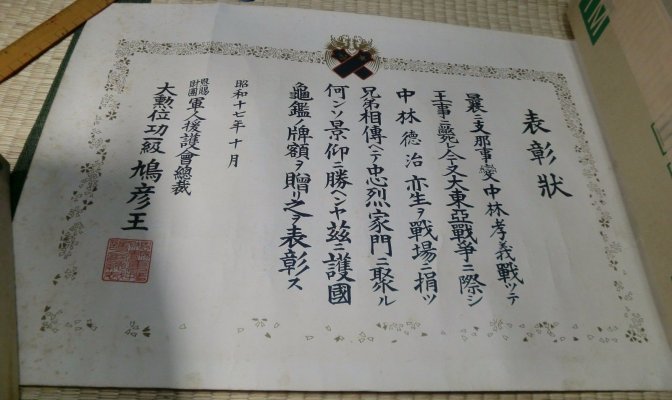 表彰狀
曩ニ支那事變中林孝義戰ツテ
王事ニ斃レ今又大東亞戰爭ニ際シ
中林德治亦生ヲ戰場ニ捐ツ
兄弟相傳ヘテ忠烈家門ニ聚ル
何ンソ景仰ニ勝ヘンヤ茲ニ護國
龜鑑ノ牌額ヲ贈リ之ヲ表彰ス
昭和十七年十月
恩賜
財團
軍人援護會總裁
大勲位功一級鳩彦王